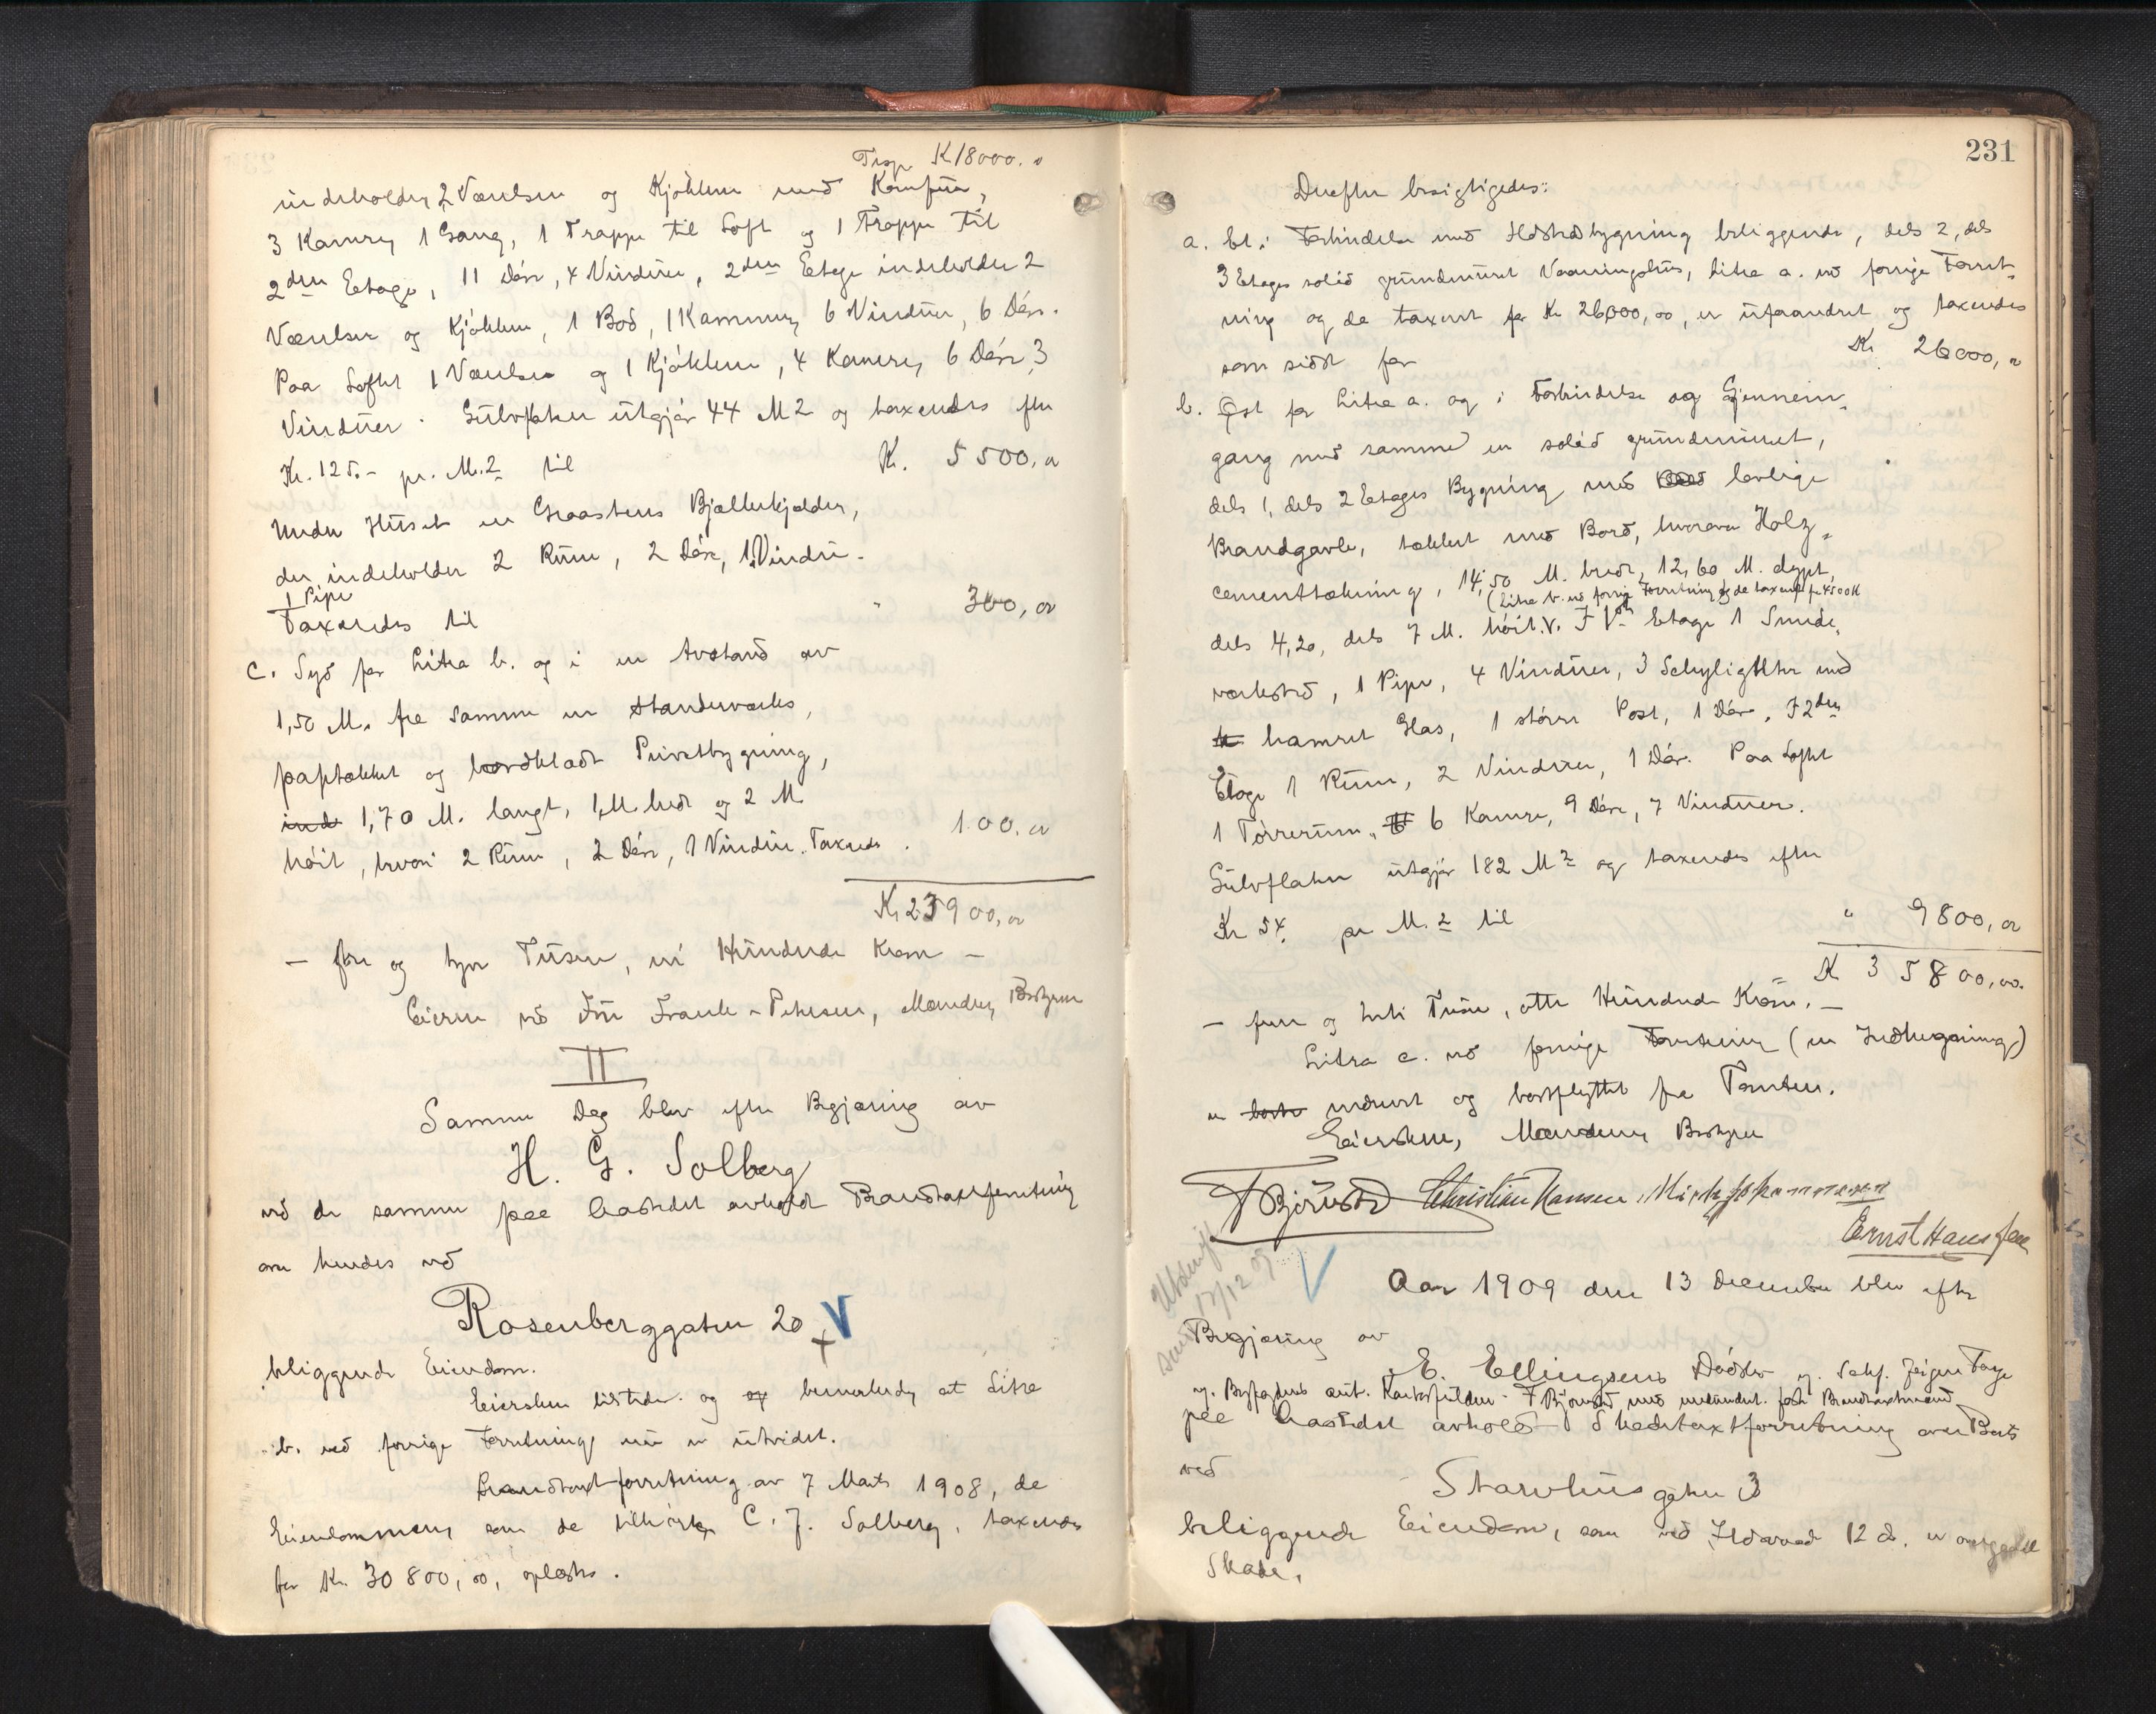 Trsp. K 18000.
indeholder 2 Værelser og Kjøkken med Komfur,
3 Kamre, 1 Gang, 1 Trappe til Loft og 1 Trappe til
2den Etage, 11 Døre, 4 Vinduer, 2den Etage indeholder 2
Værelser og Kjøkken, 1 Bod, 1 Kammer, 6 Vinduer, 6 Døre.
Paa Loftet 1 Værelse og 1 Kjøkken, 4 Kamre, 6 Døre, 3
Vinduer. Gulvflaten utgjør 44 M2 og taxeredes efter
Kr. 125.- pr. M.2 til Kr. 5500,00
Under Huset en Graastens Bjælkekjelder,
der indeholder 2 Rum, 2 Døre, 1 Vindu.
1 Pipe
Taxeredes til " 300,00
c. Syd for Litra b. og i en Avstand av
1,50 M. fra samme en Standerværks,
paptækket og bordklædt Privetbygning,
ind 1,70 M. langt, 1 M. bredt og 2 M.
høit, hvori 2 Rum, 2 Døre, 1 Vindu. Taxeredes 100.00
Kr 23900,00
— tre og tyve Tusen, ni Hundrede Kroner —
Eieren ved Fru Franck-Petersen, Mandens Bestyrer
II
Samme Dag blev efter Begjæring av
H. G. Solberg
ved de samme paa Aastedet avholdt Brandtaxtforretning
over hendes ved
Rosenberggaten 20 V
beliggende Eiendom.
Eiersken tilstede og og bemerkedes at Litra
b. ved forrige Forretning nu er utvidet.
Brandtaxtforretning av 7 Marts 1908, da
Eiendommen, som da tilhørte C. J. Solberg, taxeredes
for Kr. 30800,00, oplæstes.
231
Derefter besigtigedes:
a. Et i Forbindelse med Ildstedsbygning beliggende, dels 2, dels
3 Etages solid grundmuret Vaaningshus, Litra a. ved forrige Forret-
ning og da taxeret for Kr 26000,00, er uforandret og taxeredes
som sidst for Kr. 26000,00
b. Øst for Litra a. og i Forbindelse og Gjennem-
gang med samme en solid grundmuret,
dels 1, dels 2 Etages Bygning med lovlige
Brandgavle, tækket med Bord, hvorover Holz-
cementtækning, 14,50 M. bredt, 12,60 M. dypt,
(Litra b. ved forrige Forretning og da taxeret for 4800 Kr
dels 4,20, dels 7 M. høit. I 1ste Etage 1 Smede-
verksted, 1 Pipe, 4 Vinduer, 3 Schyligtter med
hamret Glas, 1 større Port, 1 Dør. I 2den
Etage 1 Rum, 2 Vinduer, 1 Dør. Paa Loftet
1 Tørrerum, 6 Kamre, 9 Døre, 7 Vinduer.
Gulvflaten utgjør 182 M2 og taxeredes efter
Kr 54. pr M.2 til " 9800,00
K 35800,00.
— fem og treti Tusen, otte Hundrede Kroner. —
Litra c. ved forrige Forretning (en Indhegning)
er borte nedrevet og bortflyttet fra Tomten.
Eiersken, Mandens Bestyrer
F Bjørnstad Christian Hansen, Mich Johannessen
Ernst Hansen
17/12 09
Aar 1909 den 13 December blev efter
Begjæring av
E. Ellingsens Dødsbo
paa Aastedet avholdt Skadetaxtforretning over Boets
ved
Starvhusgaten 3
beliggende Eiendom, som ved Ildsvaade 12 ds. er overgaaet
Skade.